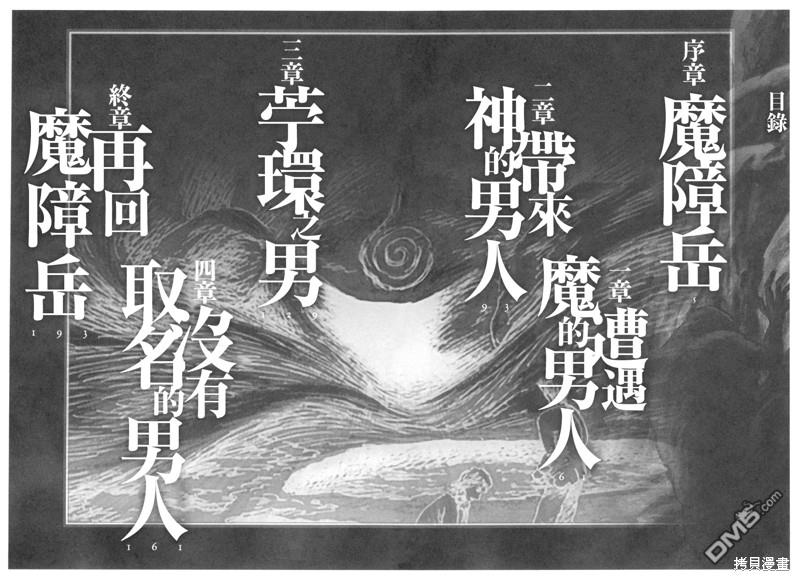 目錄
序章
魔障岳
5
一章
遭遇
魔的男人
61
二章
帶來
神的男人
93
三章
苧環之男
129
四章
沒有
取名的男人
161
終章
再回
魔障岳
193
DM5.com
拷貝漫畫